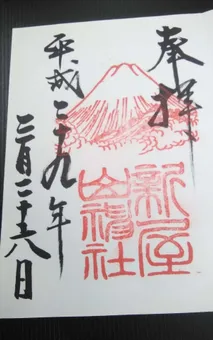 奉拝
新屋
山神社
平成二十九年
二月二十六日